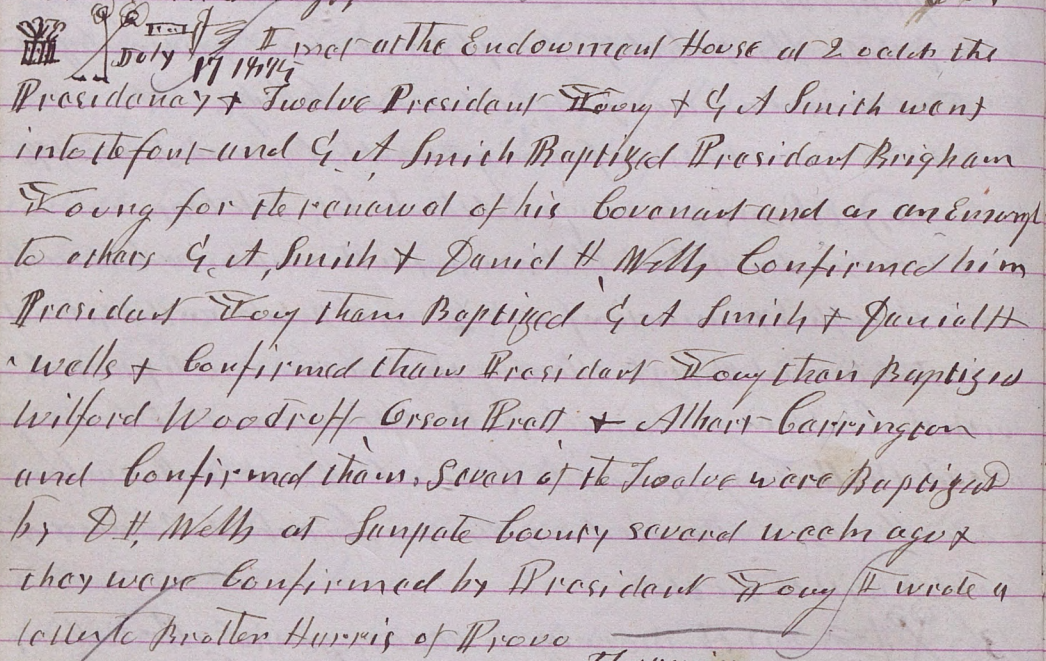 July 17 1875 I met at the Endowment House at 2 oclok the
Presidency + Twelve President Young + G A Smith went
into the font and G A Smith Baptized President Brigham
Young for the renewal of his Covenant and as an Exampl
to others G. A, Smith + Daniel H Wells Confirmed him
President Young them Baptized G A Smith + Daniel H
wells + Confirmed them President Young then Baptized
Wilford Woodruff Orson Pratt + Albert Carrington
and Confirmed them. Seven of the Twelve were Baptized
by D H, Wells at Sanpete County several weeks ago &
they were Confirmed by President Young I wrote a
letter to Brother Harris of Provo